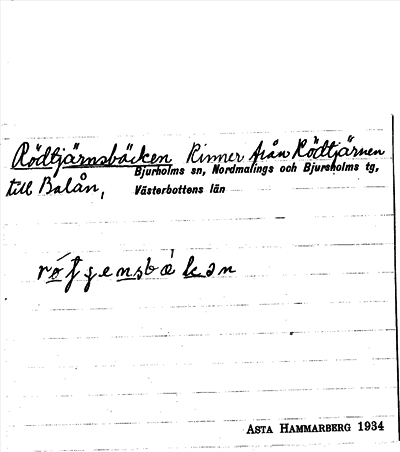 Rödtjärnsbäcken Rinner från Rödtjärnen
Bjurholms sn, Nordmalings och Bjurholms tg,
till Balån, Västerbottens län
ASTA HAMMARBERG 1934